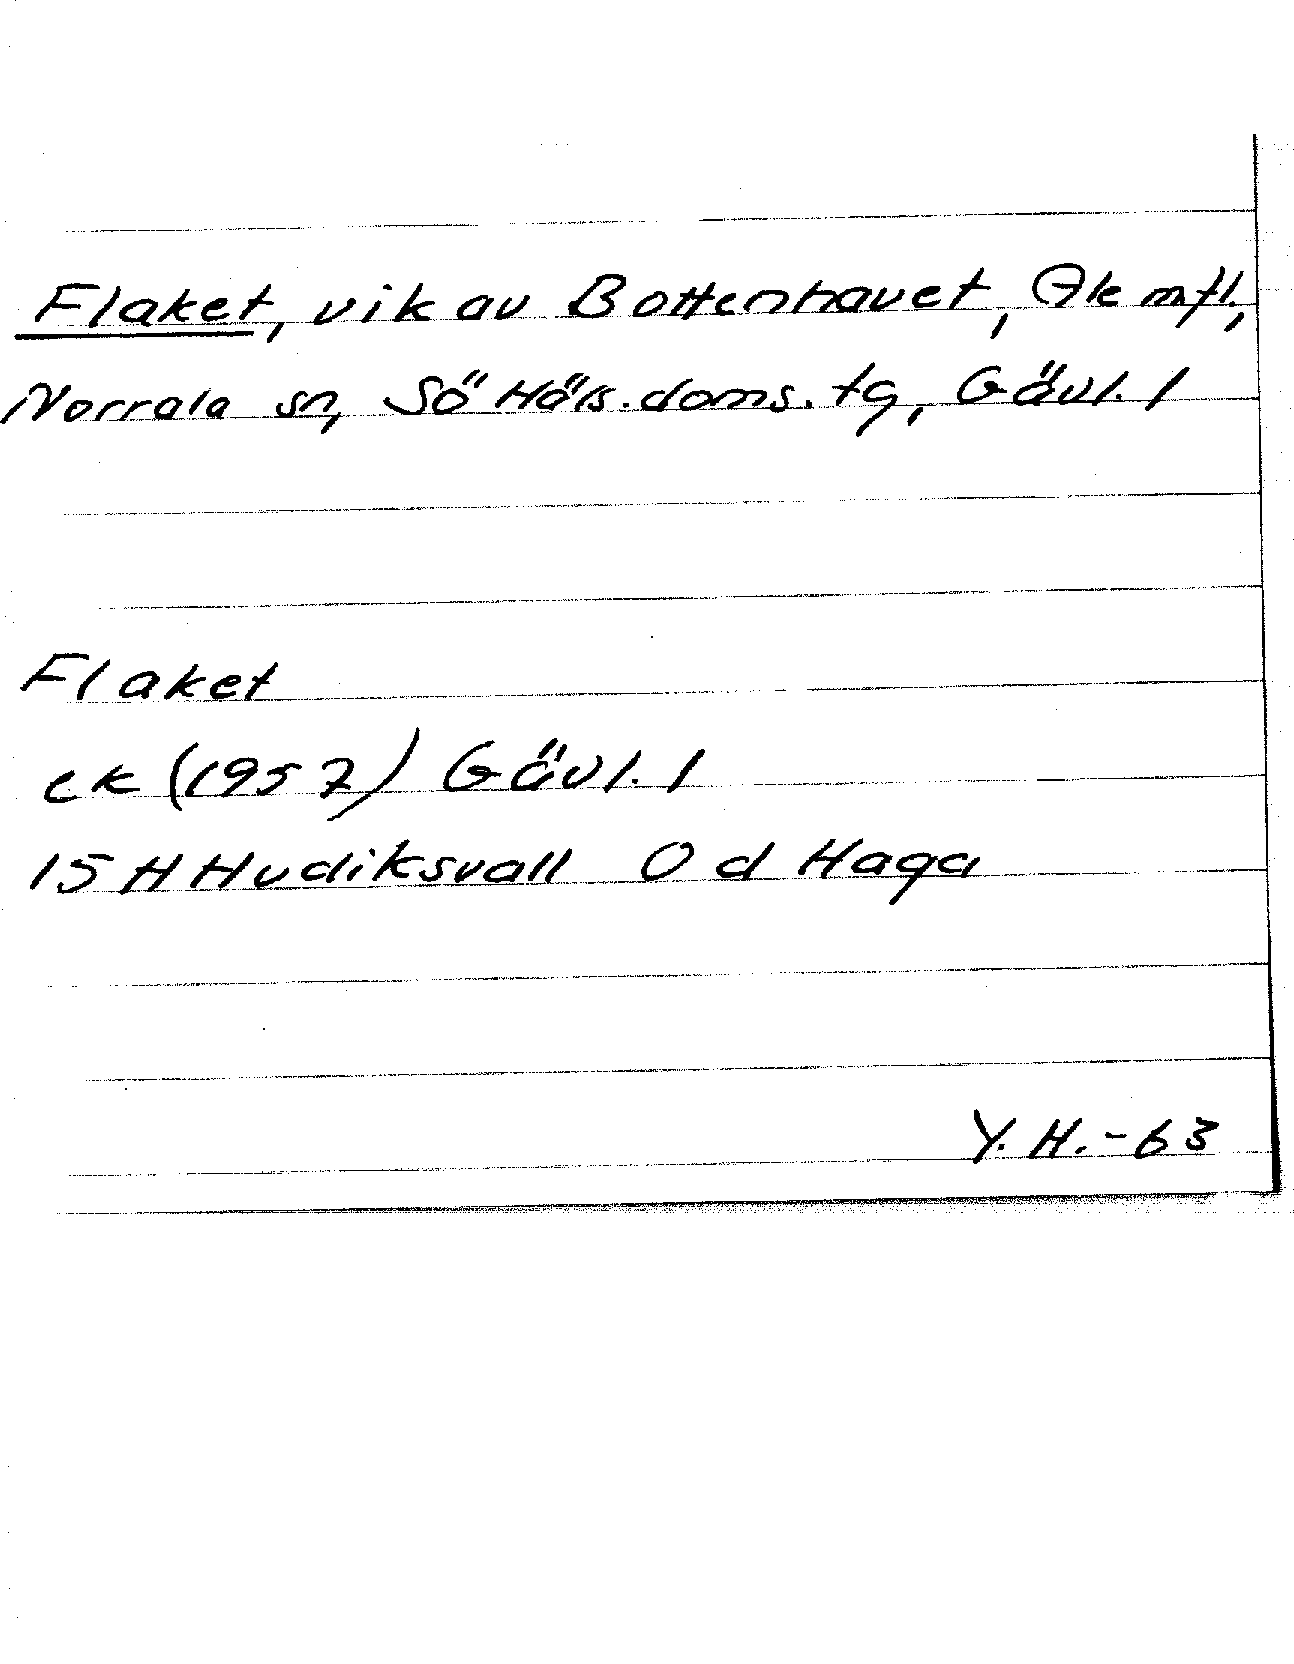 Flaket, vik av Bottenhavet, Ale mfl,
Norrala sn, Sö Häls. doms. tg, Gävl. l
Flaket
ek (1957) Gävl. l
15 H Hudiksvall 0 d Haga
Y. H. - 63